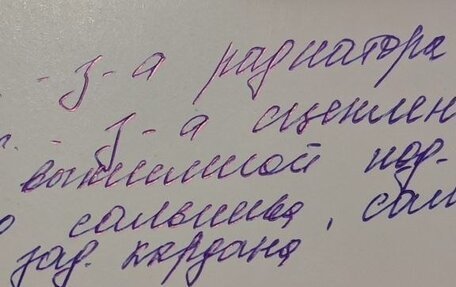 - з-а радиатора
- з-а сцеплен
выжимной под.
сальника, сал
зад. кардана